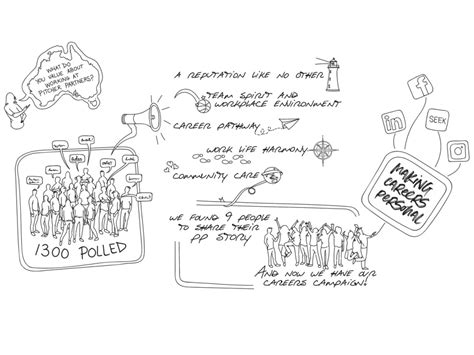 WHAT DO
YOU VALUE ABOUT
WORKING AT
PITCHER PARTNERS?
1300 POLLED
A REPUTATION LIKE NO OTHER
TEAM SPIRIT AND
WORKPLACE ENVIRONMENT
CAREER PATHWAY
WORK LIFE HARMONY
COMMUNITY CARE
WE FOUND 9 PEOPLE
TO SHARE THEIR
PP STORY
AND NOW WE HAVE OUR
CAREERS CAMPAIGN.
MAKING
CAREERS
PERSONAL
in
SEEK
f